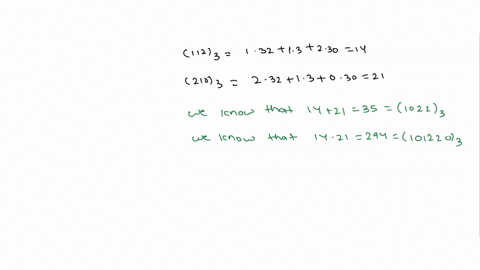 (112)₃ = 1.32+1.3+2.30 = 14
(210)₃ = 2.32+1.3+0.30 = 21
we know that 14+21 = 35 = (1022)₃
we know that 14.21 = 294 = (101220)₃